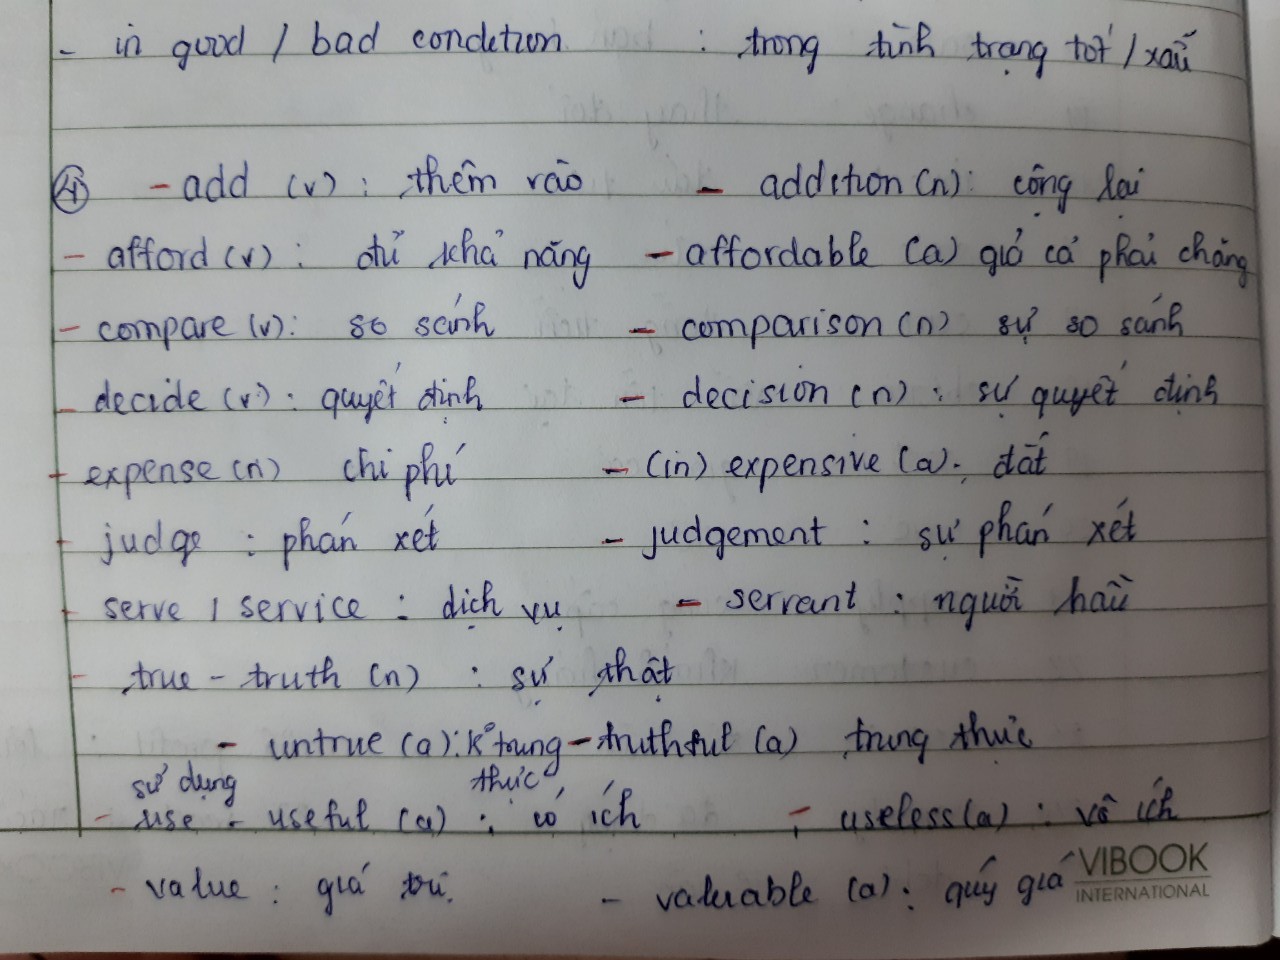 - in good / bad condition : trong tình trạng tốt / xấu
④ - add (v) : thêm vào - addition (n) : cộng lại
- afford (v) : đủ khả năng - affordable (a) giá cả phải chăng
- compare (v) : so sánh - comparison (n) sự so sánh
- decide (v) : quyết định - decision (n) : sự quyết định
- expense (n) chi phí - (in) expensive (a) : đắt
- judge : phán xét - judgement : sự phán xét
- serve / service : dịch vụ - servant : người hầu
- true - truth (n) : sự thật
- untrue (a) : k° trung thực - truthful (a) trung thực
sử dụng
- use - useful (a) : có ích - useless (a) : vô ích
- value : giá trị. - valuable (a) : quý giá
VIBOOK
INTERNATIONAL